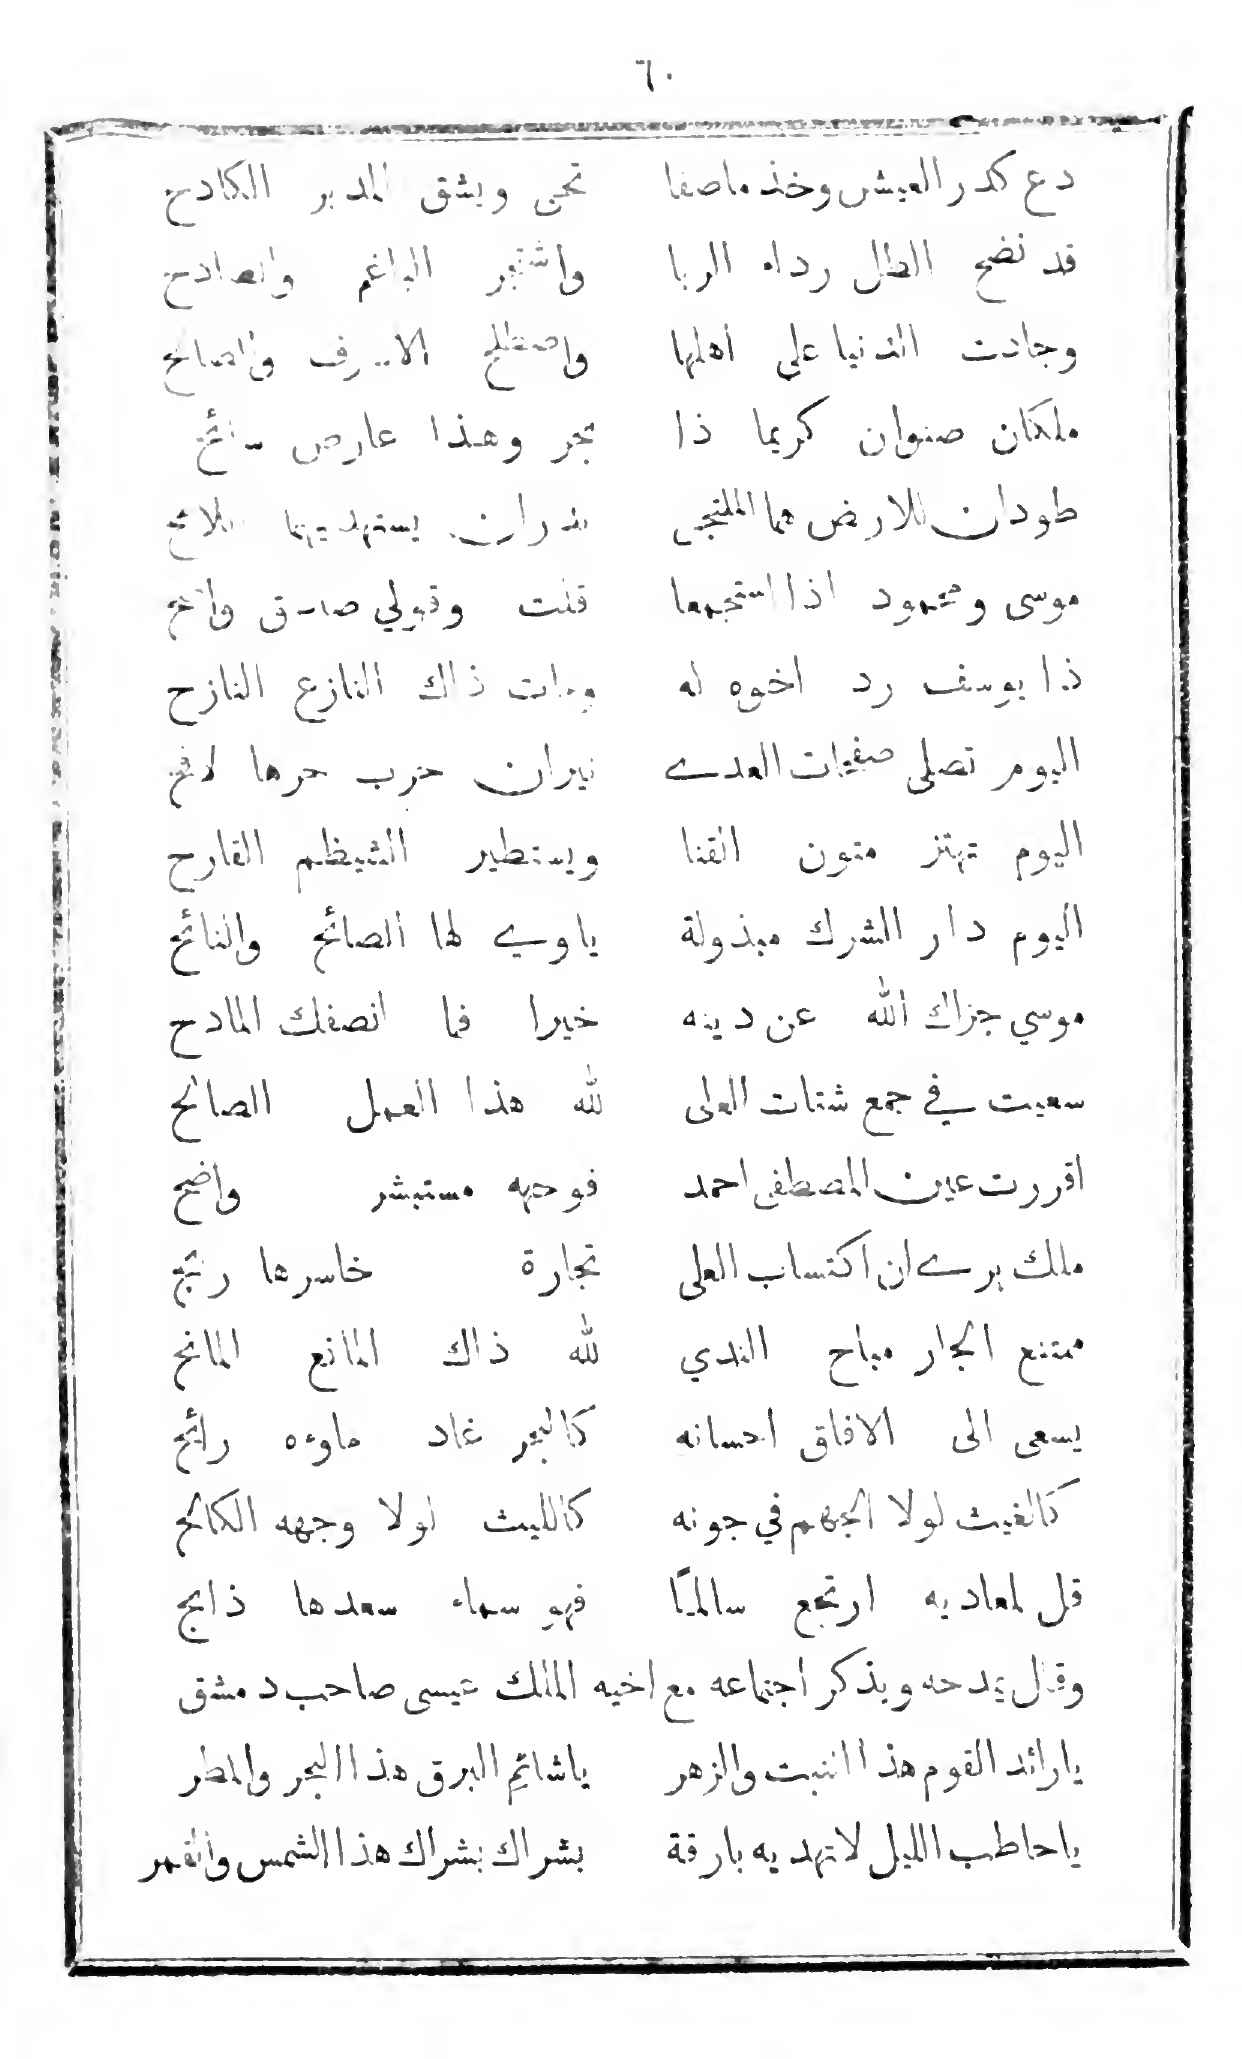 ٦٠
دع كدر العيش وخذ ما صفا تحي ويشق المدبر الكادح
قد نضح الطل رداء الربا واشتجر الباغم والصادح
وجادت الدنيا على اهلها واصطلح والصالح
ملكان صنوان كريما ذا بحر وهذا عارض سائح
طودان للارض هما الملتجى بدران يستهديهما اللائح
موسى ومحمود اذا استجمعا قلت وقولي صدق واضح
ذا يوسف رد اخوه له ومات ذاك النازع النازح
اليوم تصلى صفيات العدے نيران حرب حرها لافح
اليوم تهتز متون القنا ويستطير الشيظم القارح
اليوم دار الشرك مبذولة ياوي لها الصائح والنائح
موسي جزاك الله عن دينه خيرا فما انصفك المادح
سعيت في جمع شتات العلى لله هذا العمل الصالح
اقررت عين المصطفى احمد فوجهه مستبشر واضح
ملك يرے ان اكتساب العلى تجارة خاسرها رابح
ممتنع الجار مباح الندي لله ذاك المانع المانح
يسعى الى الافاق احسانه كالبحر غاد ماوءه رائح
كالغيث لولا الجهم في جونه كالليث لولا وجهه الكالح
قل لمعاديه ارتجع سالمًا فهو سماء سعدها ذابح
وقال يمدحه ويذكر اجتماعه مع اخيه الملك عيسى صاحب دمشق
يا رائد القوم هذا النبت والزهر يا شائم البرق هذا البحر والمطر
يا حاطب الليل لا تهديه بارقة بشراك بشراك هذا الشمس والقمر